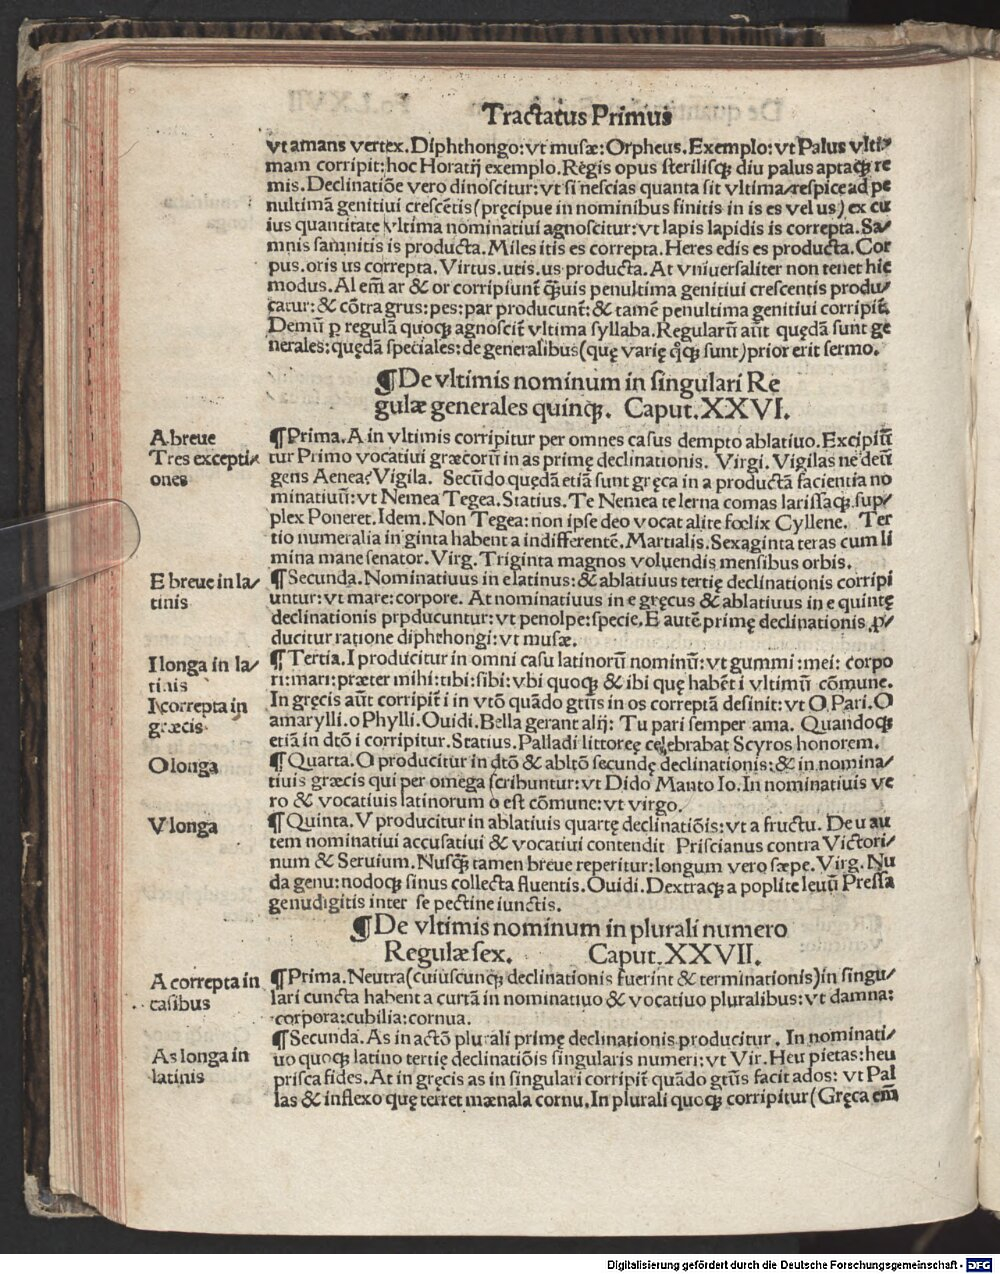 Tractatus Primus
vt amans vertex. Diphthongo: vt musæ: Orpheus. Exemplo: vt Palus vlti/
mam corripit: hoc Horatij exemplo. Regis opus sterilisqꝫ diu palus aptaqꝫ re
mis. Declinatiõe vero dinoscitur: vt si nescias quanta sit vltima/respice ad pe
nultimã genitiui crescẽtis (pręcipue in nominibus finitis in is es vel us) ex cu
ius quantitate vltima nominatiui agnoscitur: vt lapis lapidis is correpta. Sa/
mnis samnitis is producta. Miles itis es correpta. Heres edis es producta. Cor
pus. oris us correpta. Virtus. utis. us producta. At vniuersaliter non tenet hic
modus. Al em̃ ar & or corripiunt̃ q̃uis penultima genitiui crescentis produ/
catur: & cõtra grus: pes: par producunt̃: & tamẽ penultima genitiui corripit̃.
Demũ ꝑ regulã quoqꝫ agnoscit̃ vltima syllaba. Regularũ aũt quędã sunt ge
nerales: quędã speciales: de generalibus (quę varię q̊qꝫ sunt) prior erit sermo.
¶ De vltimis nominum in singulari Re
gulæ generales quinqꝫ. Caput. XXVI.
A breue
Tres excepti/
ones
¶ Prima. A in vltimis corripitur per omnes casus dempto ablatiuo. Excipiũ
tur Primo vocatiui græcorũ in as primę declinationis. Virgi. Vigilas ne deũ
gens Aenea? Vigila. Secũdo quędã etiã sunt gręca in a productã facientia no
minatiuũ: vt Nemea Tegea. Statius. Te Nemea te lerna comas larissaqꝫ sup/
plex Poneret. Idem. Non Tegea: non ipse deo vocat alite fœlix Cyllene. Ter
tio numeralia in ginta habent a indifferentẽ. Martialis. Sexaginta teras cum li
mina mane senator. Virg. Triginta magnos voluendis mensibus orbis.
E breue in la/
tinis
¶ Secunda. Nominatiuus in e latinus: & ablatiuus tertię declinationis corripi
untur: vt mare: corpore. At nominatiuus in e gręcus & ablatiuus in e quintę
declinationis prꝑducuntur: vt penolpe: specie. E autẽ primę declinationis ꝓ/
ducitur ratione diphthongi: vt musæ.
I longa in la/
tinis
I correpta in
græcis
¶ Tertia. I producitur in omni casu latinorũ nominũ: vt gummi: mei: corpo
ri: mari: præter mihi: tibi: sibi: vbi quoqꝫ & ibi quę habẽt i vltimũ cõmune.
In gręcis aũt corripit̃ i in vtõ quãdo gtũs in os correptã desinit: vt O Pari. O
amarylli. o Phylli. Ouidi. Bella gerant alij: Tu pari semper ama. Quandoqꝫ
etiã in dtõ i corripitur. Statius. Palladi littoreę celebrabat Scyros honorem.
O longa
¶ Quarta. O producitur in dtõ & abltõ secundę declinationis: & in nomina/
tiuis græcis qui per omega scribuntur: vt Dido Manto Io. In nominatiuis ve
ro & vocatiuis latinorum o est cõmune: vt virgo.
V longa
¶ Quinta. V producitur in ablatiuis quartę declinatiõis: vt a fructu. De u au
tem nominatiui accusatiui & vocatiui contendit Priscianus contra Victori/
num & Seruium. Nusq̃ tamen breue reperitur: longum vero sæpe. Virg. Nu
da genu: nodoqꝫ sinus collecta fluentis. Ouidi. Dextraqꝫ a poplite leuũ Pressa
genu digitis inter se pectine iunctis.
¶ De vltimis nominum in plurali numero
Regulæ sex. Caput. XXVII.
A correpta in
casibus
¶ Prima. Neutra (cuiuscunqꝫ declinationis fuerint & terminationis) in singu/
lari cuncta habent a curtã in nominatiuo & vocatiuo pluralibus: vt damna:
corpora: cubilia: cornua.
As longa in
latinis
¶ Secunda. As in actõ plurali primę declinationis producitur. In nominati/
uo quoqꝫ latino tertię declinatiõis singularis numeri: vt Vir. Heu pietas: heu
prisca fides. At in gręcis as in singulari corripit̃ quãdo gtũs facit ados: vt Pal
las & inflexo quę terret mænala cornu. In plurali quoqꝫ corripitur (Gręca em̃
Digitalisierung gefördert durch die Deutsche Forschungsgemeinschaft - DFG